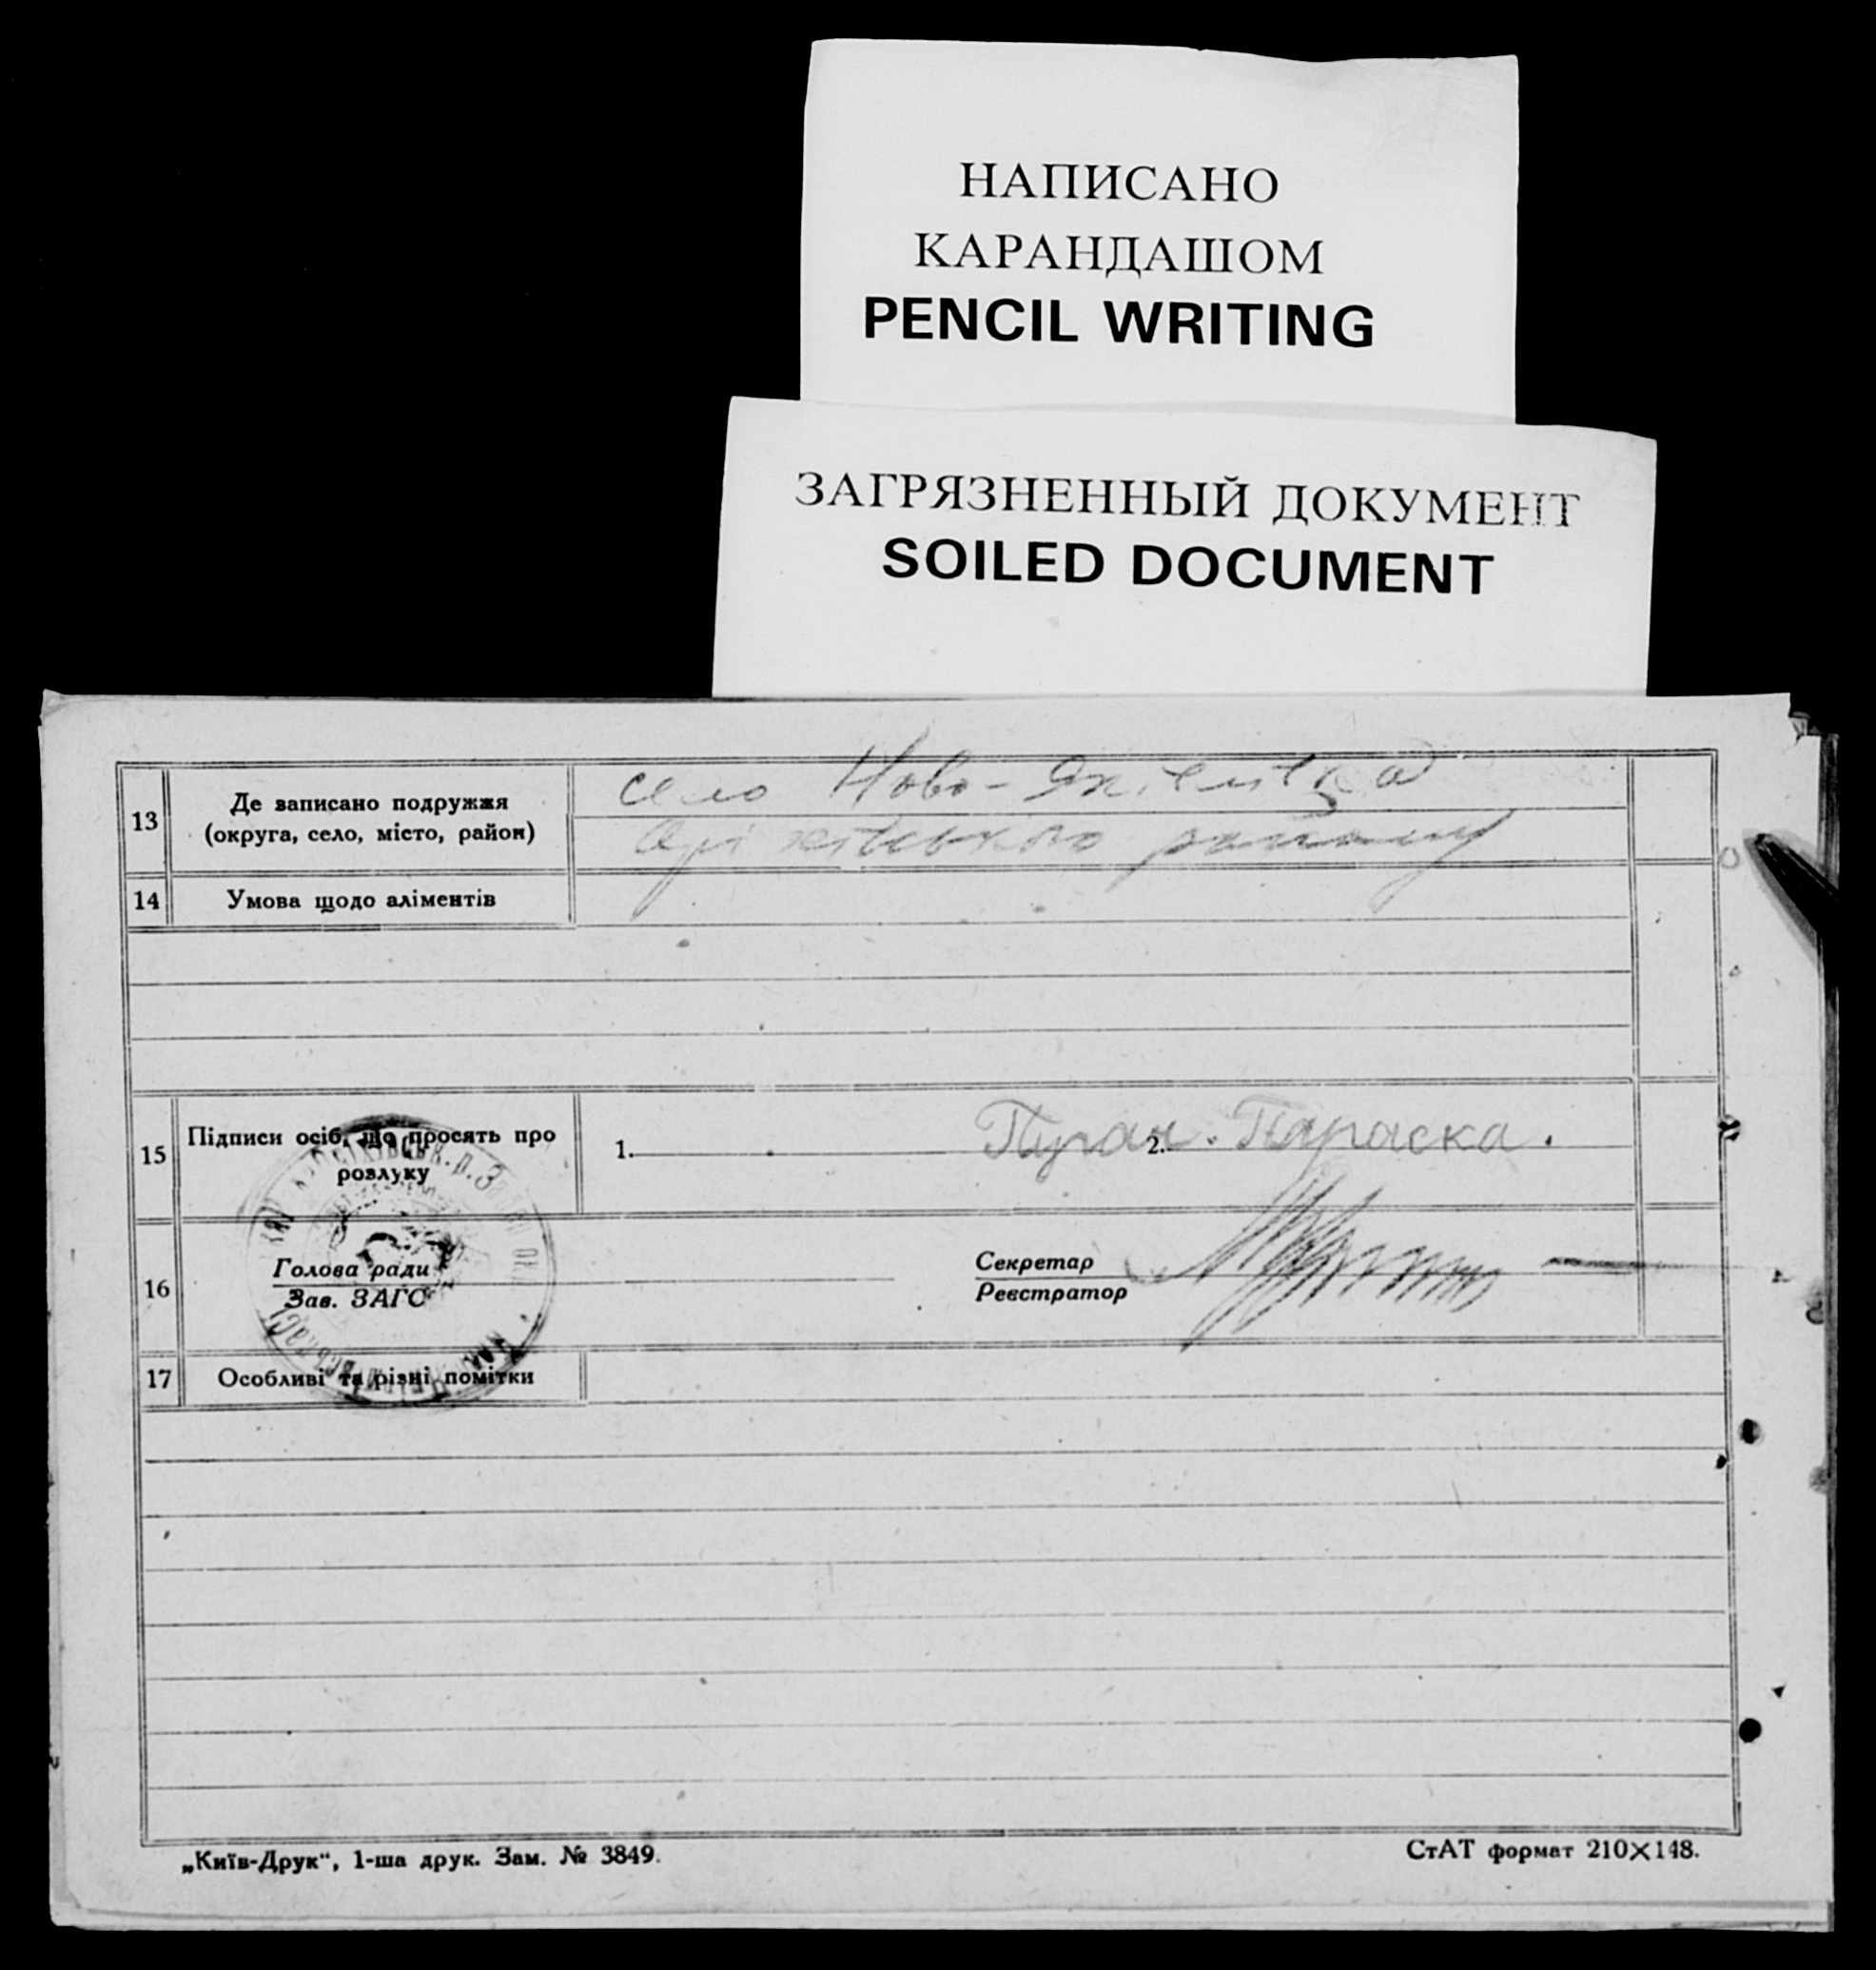 НАПИСАНО
КАРАНДАШОМ
PENCIL WRITING
ЗАГРЯЗНЕННЫЙ ДОКУМЕНТ
SOILED DOCUMENT
13
Де записано подружжя
(округа, село, місто, район)
село Ново-
району
14
Умова щодо аліментів
15
Підписи осіб, що просять про
розлуку
1.
2.
Параска.
16
Голова ради
Зав. ЗАГС
Секретар
Реєстратор
17
Особливі та різні помітки
„Київ-Друк“, 1-ша друк. Зам. № 3849.
СтАТ формат 210×148.